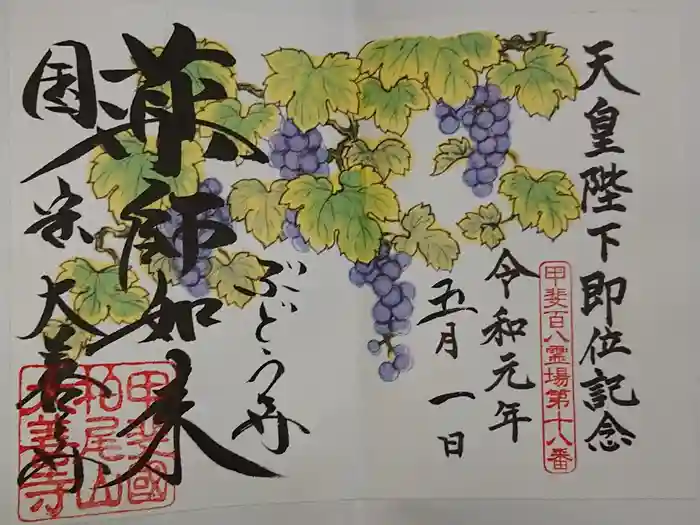 天皇陛下即位記念
甲斐百八霊場第十八番
令和元年
五月一日
ぶどう寺
薬師如来
国宝大善寺
甲斐國
柏尾山
大善寺